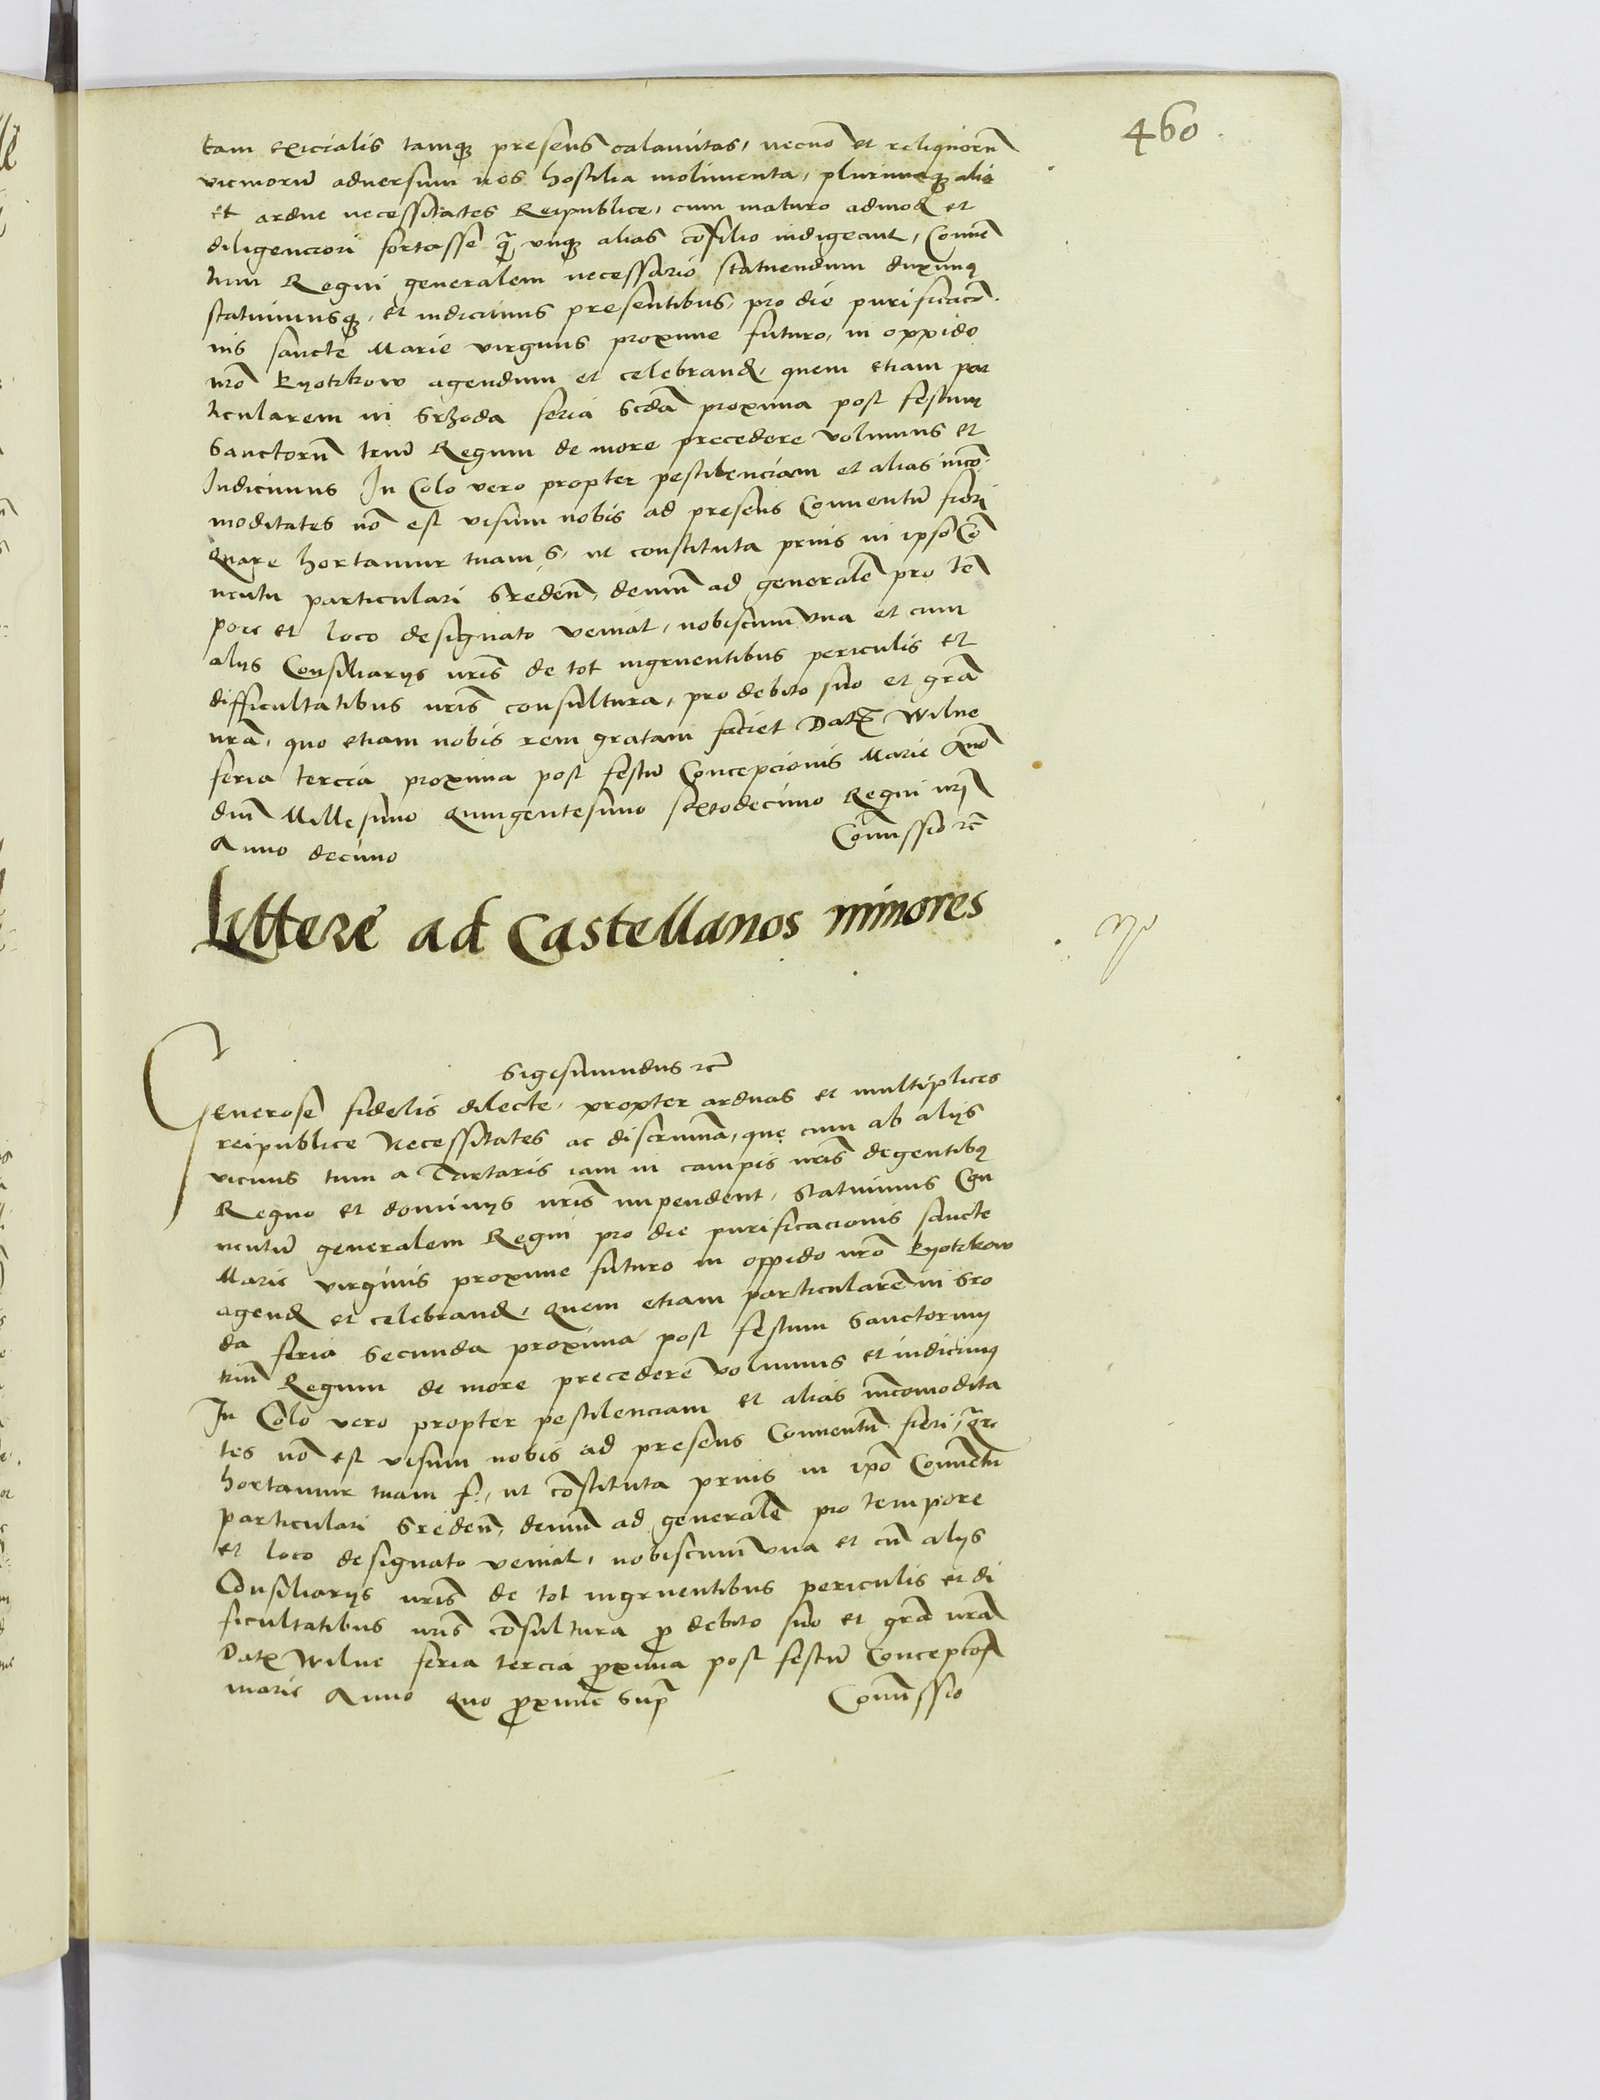 460
tam exicialis tamqz presens calamitas, necnō et reliquorū
vicinorū adversum nos hostilia molimenta, plurimeqz alie
et ardue necessitates Reipublice, cum maturo admod et
diligenciori fortasse q̄ unqz alias cōsilio indigeant, Conuē
tum Regni generalem necessario statuendum duximus
statuimusqz, et indicimus presentibus, pro die purificacio
nis sancte Marie virginis proxime futuro, in oppido
nrō Pyotrkow agendum et celebrand, quem etiam par
ticularem in Srzoda feria scdā proxima post festum
Sanctorū triū Regum de more precedere volumus et
Indicimus In Colo vero propter pestilenciam et alias incō
moditates nō est visum nobis ad presens Conuentū fieri
Quare hortamur tuam S, ut constituta prius in ipso Cō
uentu particulari Sredeñ, demū ad generalē pro tē
pore et loco designato veniat, nobiscum una et cum
alijs Consiliarijs nrīs de tot ingruentibus periculis et
difficultatibus nrīs consultura, pro debito suo et grā
nrā, quo etiam nobis rem gratam faciet Datz Wilne
feria tercia proxima post festū Concepcionis Marie Anō
dnī Millesimo Quingentesimo sextodecimo Regni nrī
Anno decimo
Cōmissio rc
Littere ad Castellanos minores
Sigismundus rc
Generose fidelis dilecte, propter arduas et multiplices
reipublice Necessitates ac discrimina, que cum ab alijs
vicinis tum a Tartaris iam in campis nrīs degentibus
Regno et dominijs nrīs impendent, Statuimus Con
uentū generalem Regni pro die purificacionis sancte
Marie virginis proxime futuro in oppido nrō Pyotrkow
agend et celebrand, Quem etiam particularē in Sro
da feria Secunda proxima post festum Sanctorum
triū Regum de more precedere volumus et indicimus
In Colo vero propter pestilenciam et alias incōmodita
tes nō est visum nobis ad presens Conuentū fieri, qre
hortamur tuam f., ut cōstituta prius in ipō Conuētu
particulari Sredeñ, demū ad generalē pro tempore
et loco designato veniat, nobiscum una et cū alijs
Consiliarijs nrīs de tot ingruentibus periculis et di
ficultatibus nrīs cōsultura p debito suo et grā nrā
Datz Wilne feria tercia pxima post festū Concepcōs
marie Anno Quo pxime supra
Cōmissio